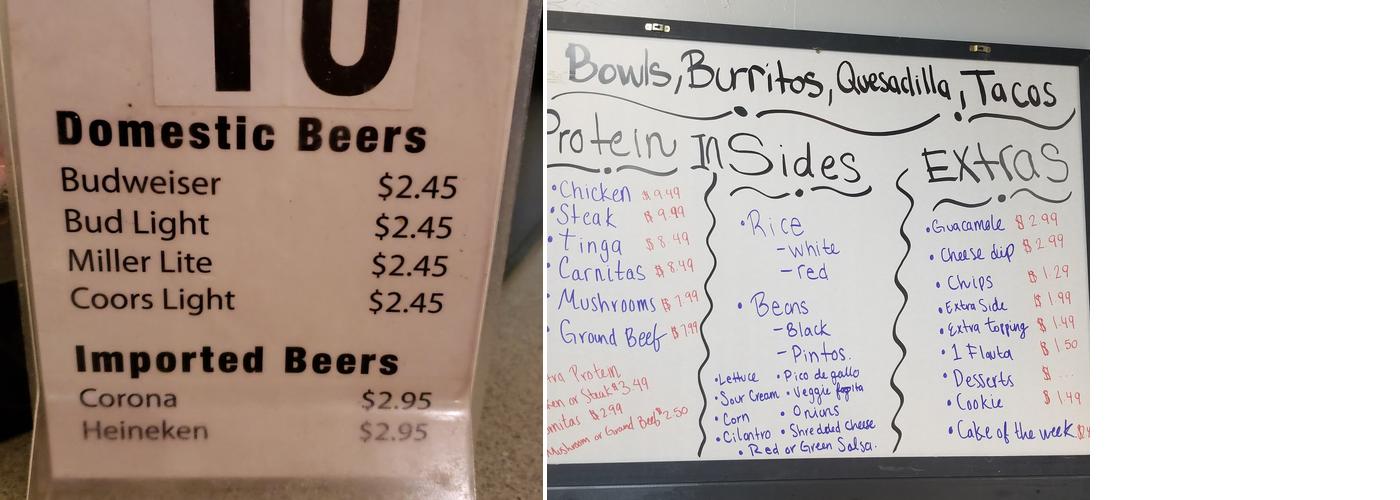 10
Domestic Beers
Budweiser $2.45
Bud Light $2.45
Miller Lite $2.45
Coors Light $2.45
Imported Beers
Corona $2.95
Heineken $2.95
Bowls, Burritos, Quesadilla, Tacos
Protein In
•Chicken $9.49
•Steak $9.99
•Tinga $8.49
•Carnitas $8.49
•Mushrooms $7.99
•Ground Beef $7.99
tra Protein
en or Steak $3.49
rnitas $2.99
Mushroom or Ground Beef $2.50
Sides
•Rice
-white
-red
•Beans
-Black
-Pintos.
•Lettuce •Pico de gallo
•Sour Cream •Veggie fagita
•Corn •Onions
•Cilantro •Shredded cheese
•Red or Green Salsa.
Extras
•Guacamole $2.99
•Cheese dip $2.99
•Chips $1.29
•Extra Side $1.99
•Extra topping $1.49
•1 Flauta $1.50
•Desserts $...
•Cookie $1.49
•Cake of the week